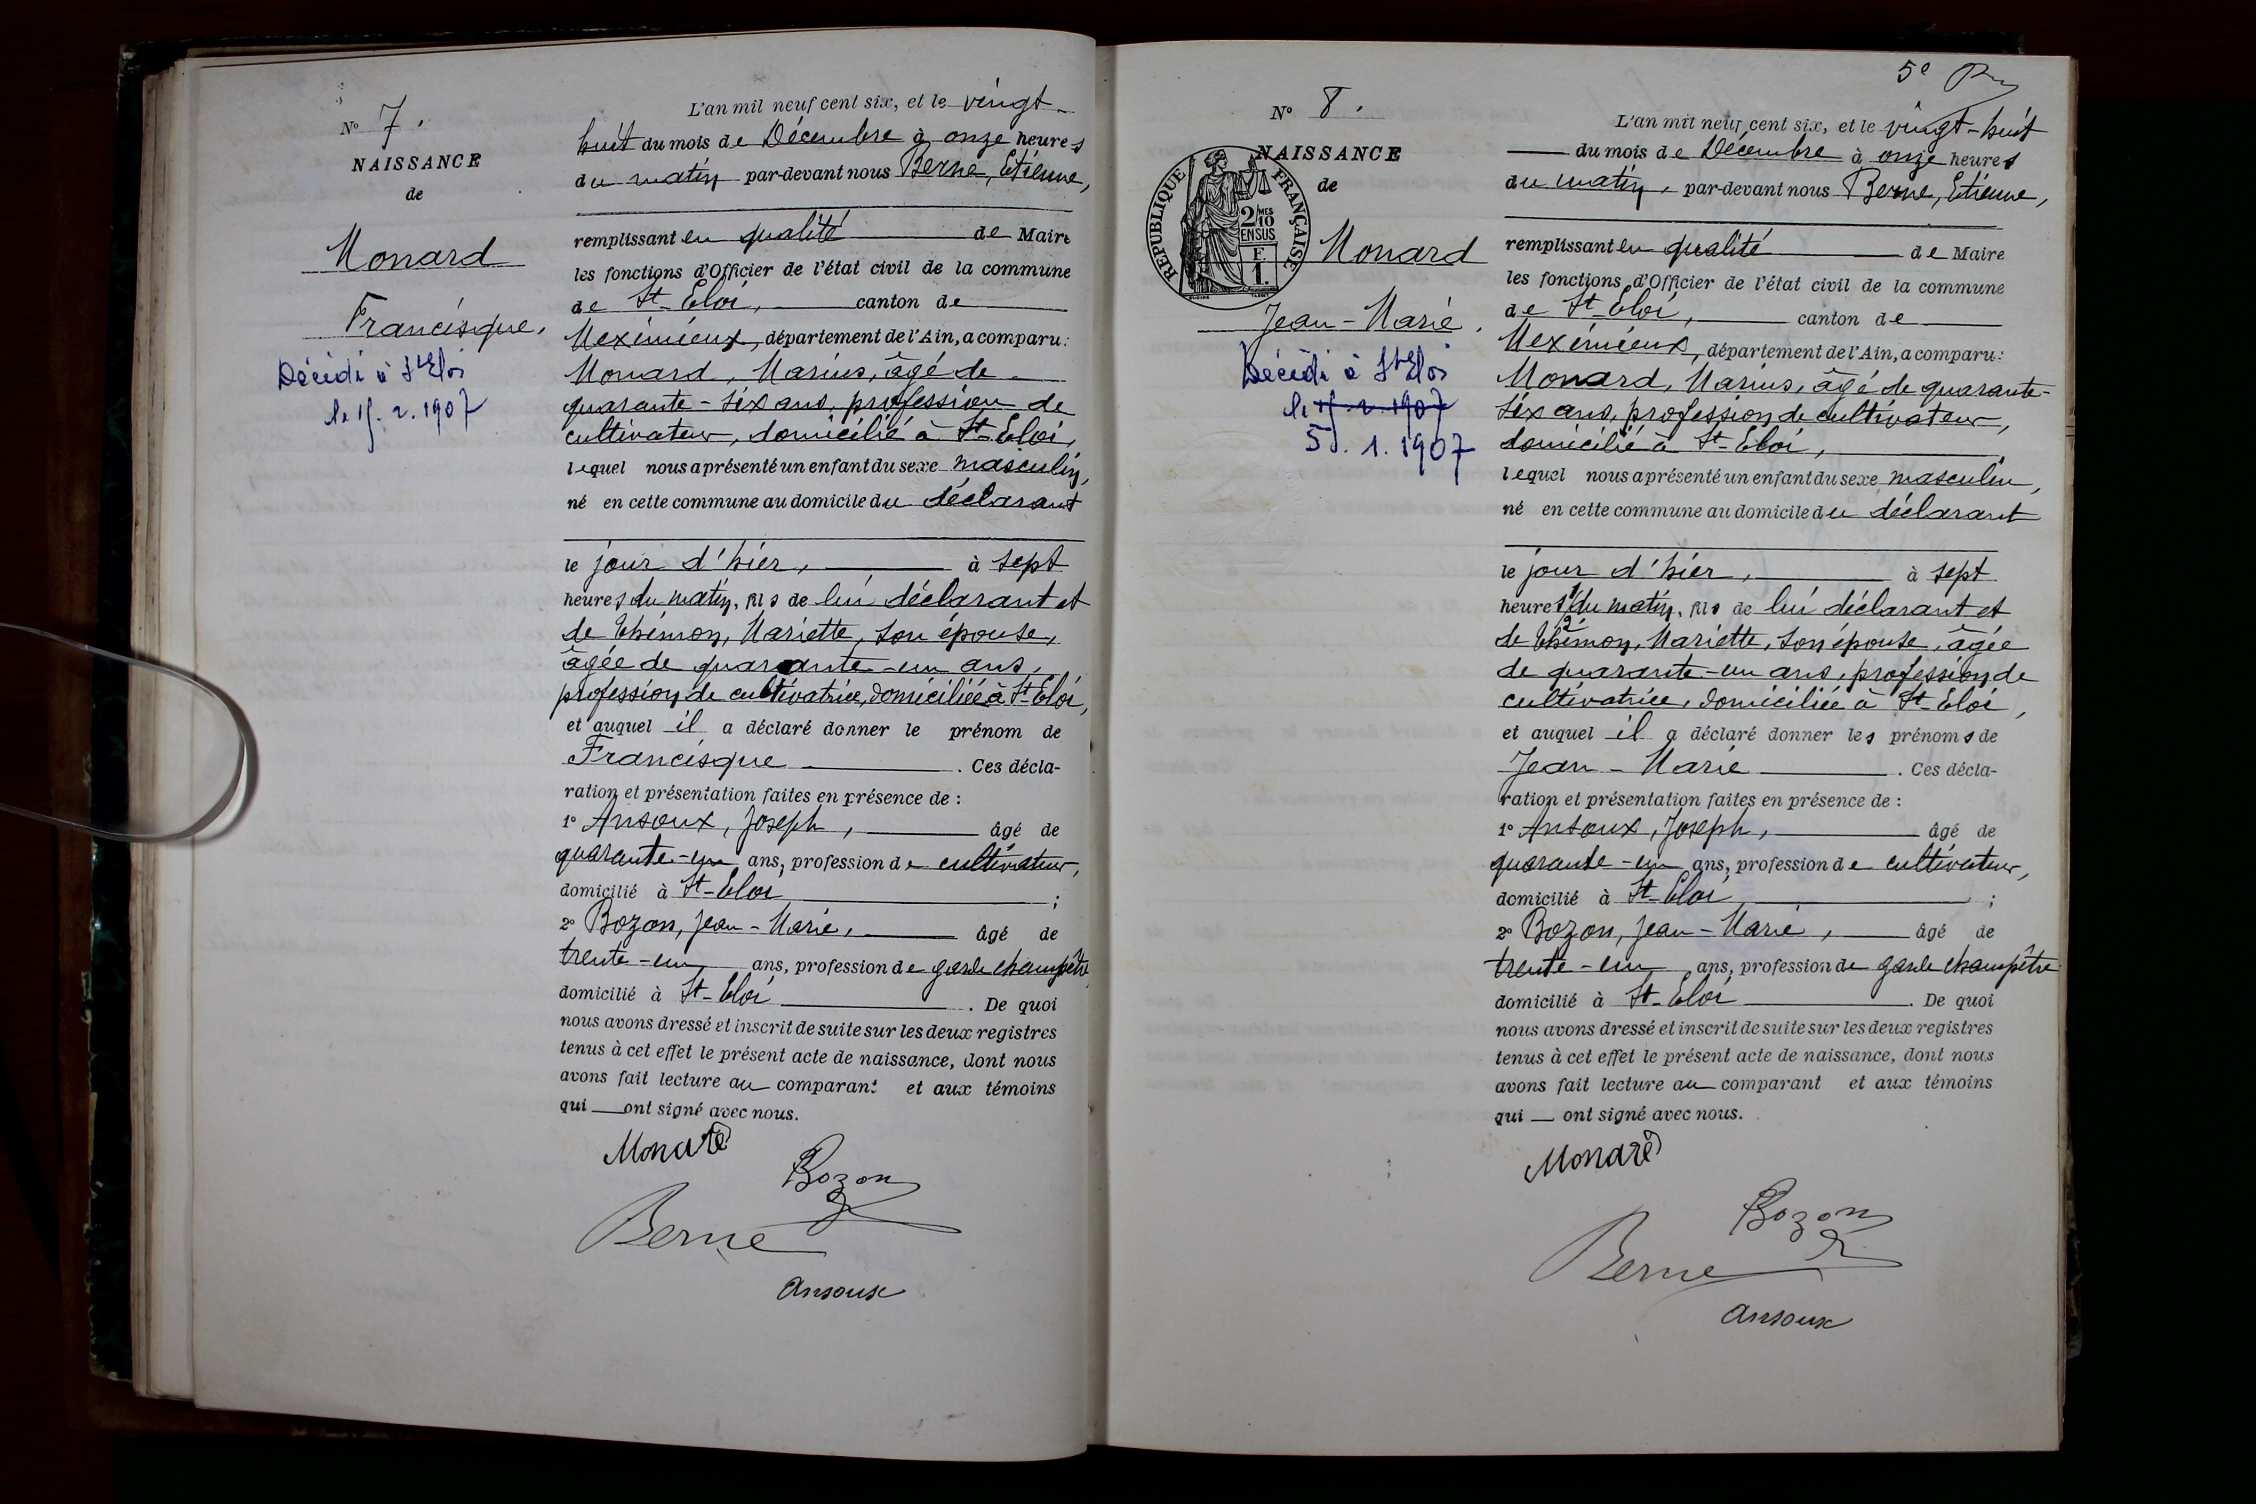 Nº 7.
NAISSANCE
de
Monard
Francisque,
Décédé à St Eloi
le 15. 2. 1907
L'an mil neuf cent six, et le vingt-
huit du mois de Décembre à onze heures
du matin par-devant nous Berne, Etienne,
remplissant en qualité de Maire
les fonctions d'Officier de l'état civil de la commune
de St-Eloi, canton de
Meximieux, département de l'Ain, a comparu:
Monard, Marius, âgé de
quarante-six ans, profession de
cultivateur, domicilié à St-Eloi,
lequel nous a présenté un enfant du sexe masculin,
né en cette commune au domicile du déclarant
le jour d'hier, à sept
heures du matin, fils de lui déclarant et
de Thémon, Mariette, son épouse,
âgée de quarante-un ans,
profession de cultivatrice, domiciliée à St-Eloi,
et auquel il a déclaré donner le prénom de
Francisque . Ces décla-
ration et présentation faites en présence de :
1º Ansoux, Joseph, âgé de
quarante-un ans, profession de cultivateur,
domicilié à St-Eloi ;
2º Bozon, Jean-Marie, âgé de
trente-un ans, profession de garde champêtre,
domicilié à St-Eloi . De quoi
nous avons dressé et inscrit de suite sur les deux registres
tenus à cet effet le présent acte de naissance, dont nous
avons fait lecture au comparant et aux témoins
qui ont signé avec nous.
Monard
Bozon
Berne
Ansoux
5e
Nº 8.
NAISSANCE
de
RÉPUBLIQUE FRANÇAISE
2/10MES
EN SUS
F.
1.
Monard
Jean-Marie.
Décédé à St Eloi
le 15. 2. 1907
5. 1. 1907
L'an mil neuf cent six, et le vingt-huit
du mois de Décembre à onze heures
du matin, par-devant nous Berne, Etienne,
remplissant en qualité de Maire
les fonctions d'Officier de l'état civil de la commune
de St-Eloi, canton de
Meximieux, département de l'Ain, a comparu:
Monard, Marius, âgé de quarante-
six ans, profession de cultivateur,
domicilié à St-Eloi,
lequel nous a présenté un enfant du sexe masculin,
né en cette commune au domicile du déclarant
le jour d'hier, à sept
heures du matin, fils de lui déclarant et
de Thémon, Mariette, son épouse, âgée
de quarante-un ans, profession de
cultivatrice, domiciliée à St-Eloi,
et auquel il a déclaré donner les prénoms de
Jean-Marie . Ces décla-
ration et présentation faites en présence de :
1º Ansoux, Joseph, âgé de
quarante-un ans, profession de cultivateur,
domicilié à St-Eloi ;
2º Bozon, Jean-Marie, âgé de
trente-un ans, profession de garde champêtre
domicilié à St-Eloi . De quoi
nous avons dressé et inscrit de suite sur les deux registres
tenus à cet effet le présent acte de naissance, dont nous
avons fait lecture au comparant et aux témoins
qui ont signé avec nous.
Monard
Bozon
Berne
Ansoux